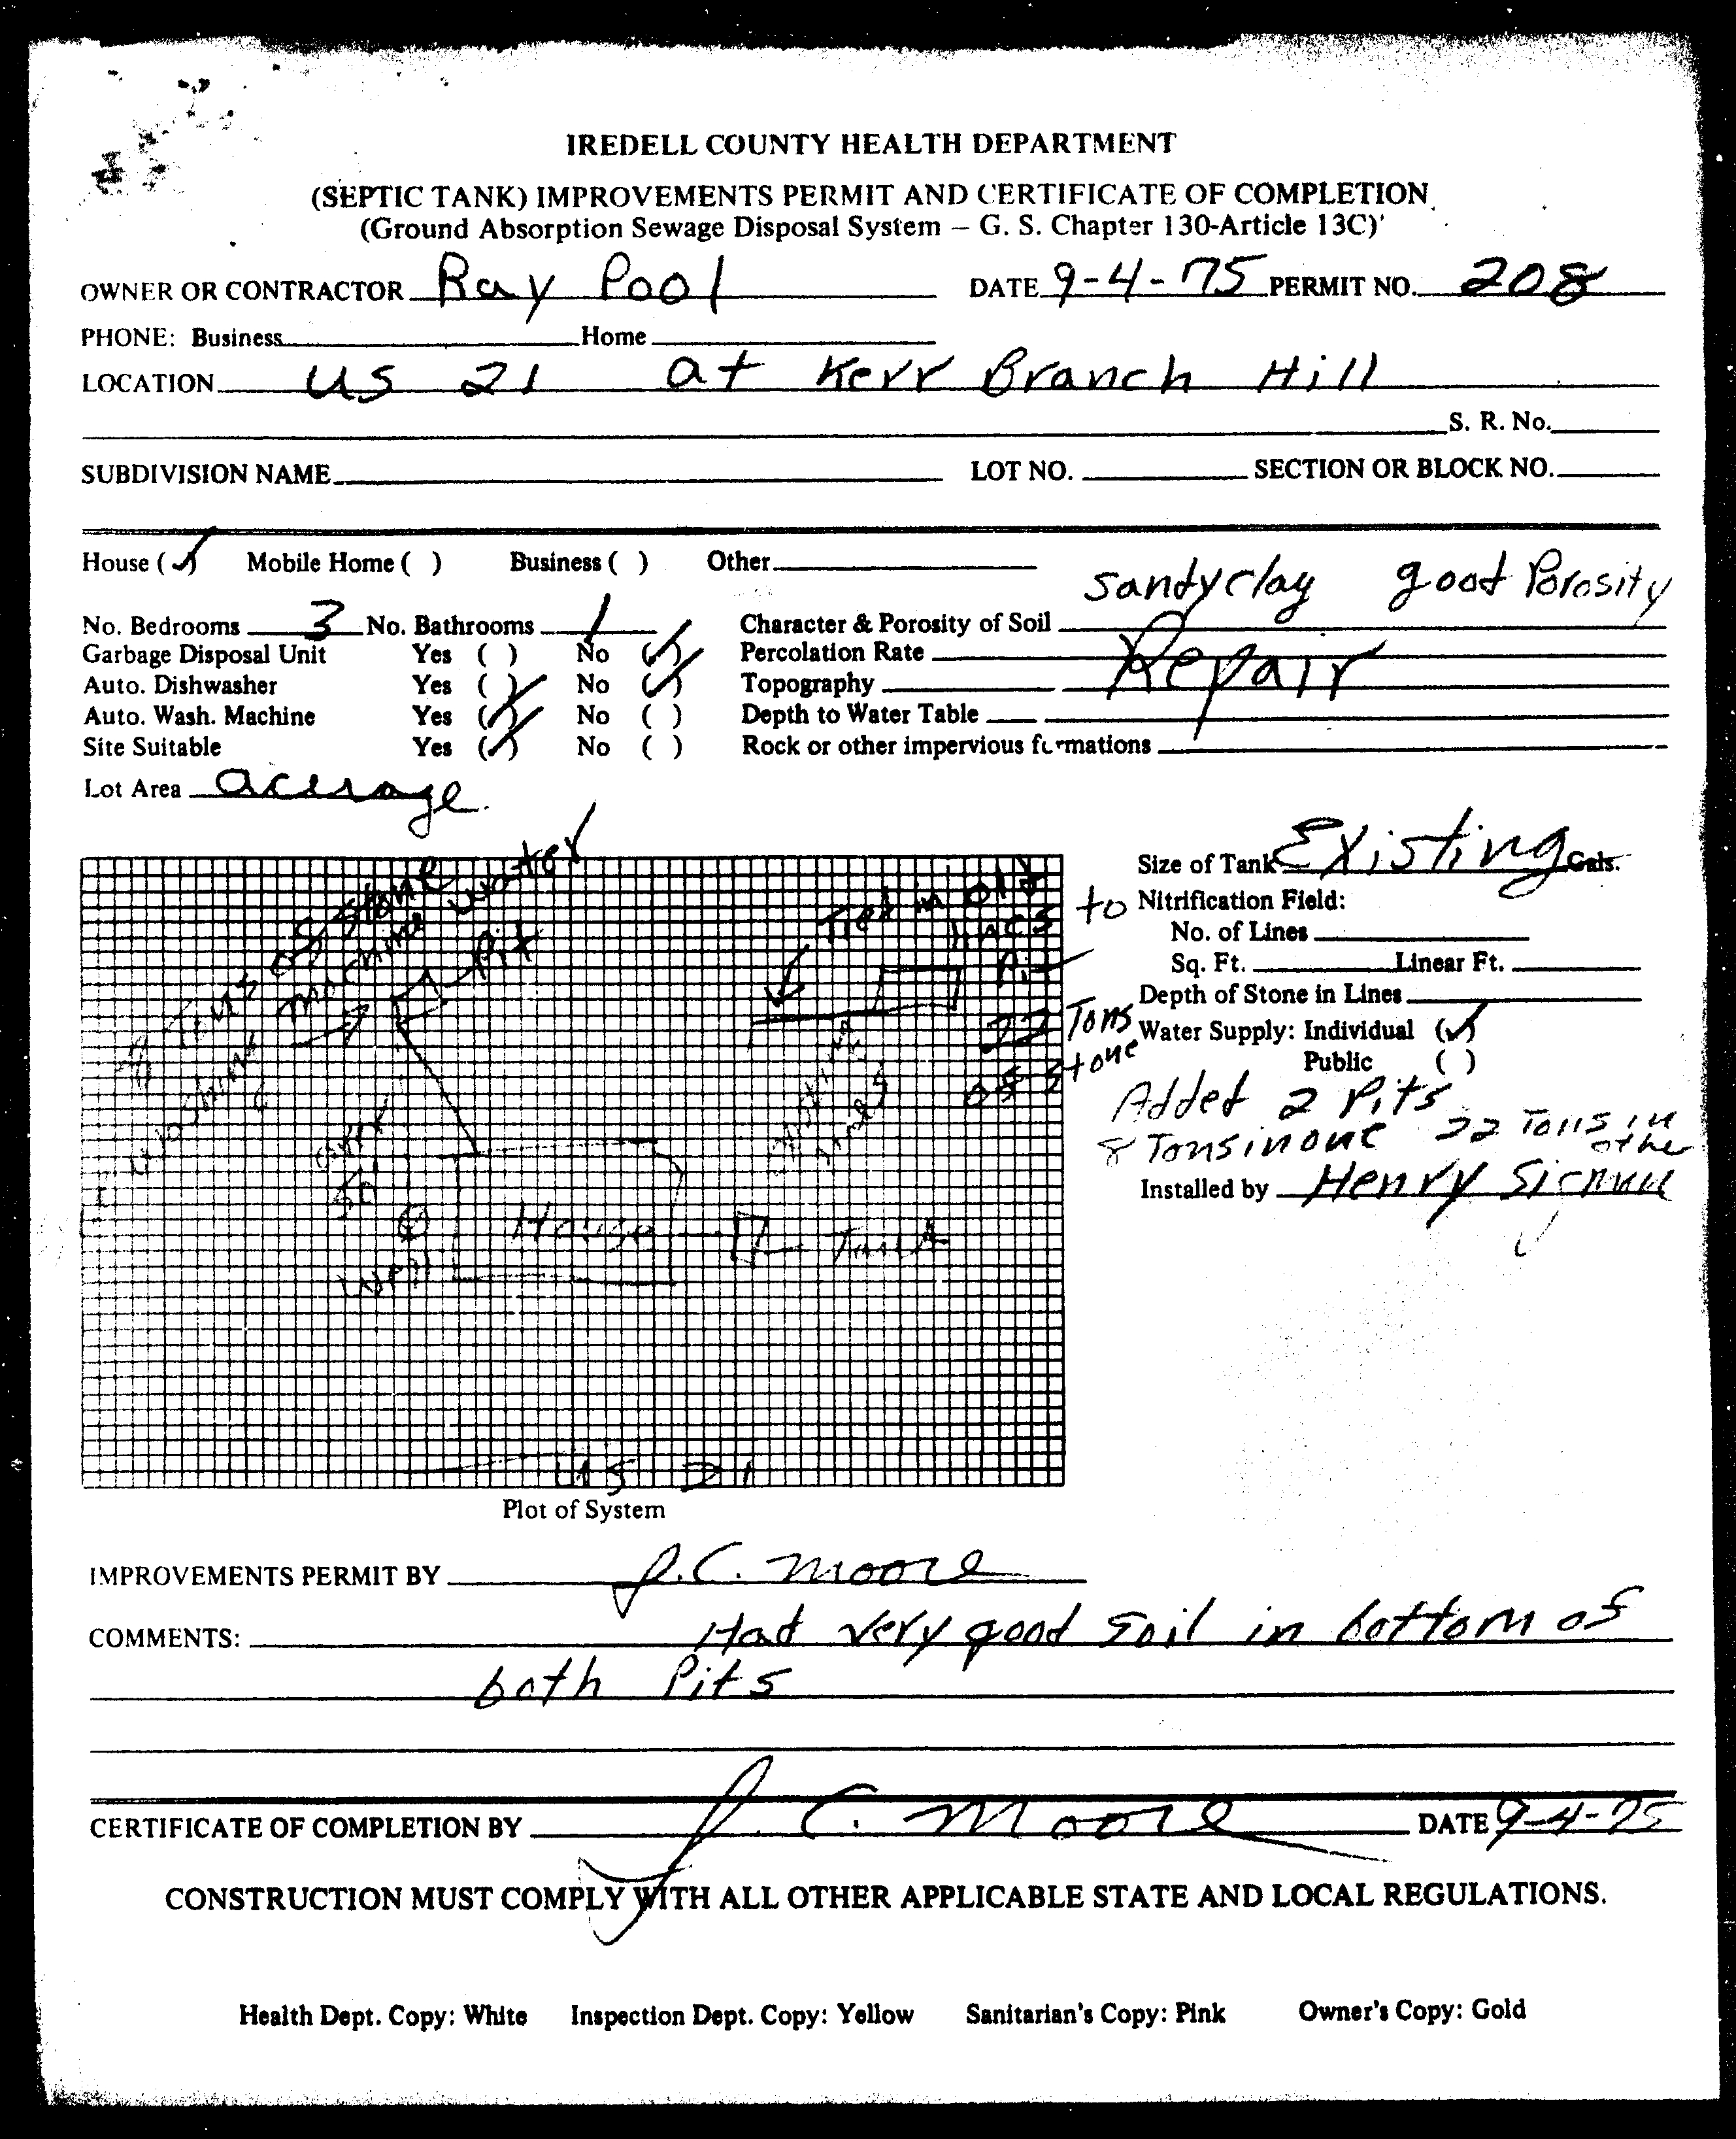 IREDELL COUNTY HEALTH DEPARTMENT
(SEPTIC TANK) IMPROVEMENTS PERMIT AND CERTIFICATE OF COMPLETION
(Ground Absorption Sewage Disposal System – G. S. Chapter 130-Article 13C)
OWNER OR CONTRACTOR Ray Pool DATE 9-4-75 PERMIT NO. 208
PHONE: Business Home
LOCATION US 21 at Kerr Branch Hill
S. R. No.
SUBDIVISION NAME LOT NO. SECTION OR BLOCK NO.
House (✓) Mobile Home ( ) Business ( ) Other
No. Bedrooms 3 No. Bathrooms 1 Character & Porosity of Soil Sandy clay good Porosity
Garbage Disposal Unit Yes ( ) No (✓) Percolation Rate Repair
Auto. Dishwasher Yes ( ) No (✓) Topography
Auto. Wash. Machine Yes (✓) No ( ) Depth to Water Table
Site Suitable Yes (✓) No ( ) Rock or other impervious formations
Lot Area acerage
8 Tons of Stone
washing machine water
Pit
Tied in old
lines to
Pit
22 Tons
of Stone
existing
lines
over
50'
Well
House
Tank
US 21
Plot of System
Size of Tank Existing Gals.
Nitrification Field:
No. of Lines
Sq. Ft. Linear Ft.
Depth of Stone in Lines
Water Supply: Individual (✓)
Public ( )
Added 2 Pits
8 Tons in one 22 Tons in other
Installed by Henry
IMPROVEMENTS PERMIT BY J.C. Moore
COMMENTS: Had very good soil in bottom of
both Pits
CERTIFICATE OF COMPLETION BY J. C. Moore DATE 9-4-75
CONSTRUCTION MUST COMPLY WITH ALL OTHER APPLICABLE STATE AND LOCAL REGULATIONS.
Health Dept. Copy: White Inspection Dept. Copy: Yellow Sanitarian's Copy: Pink Owner's Copy: Gold